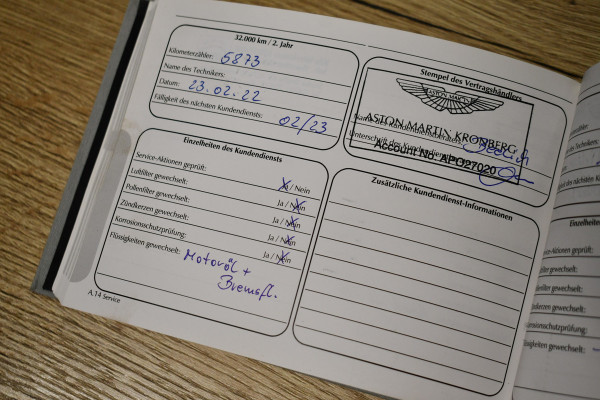 32.000 km / 2. Jahr
Kilometerzähler: 5873
Name des Technikers:
Datum: 23.02.22
Fälligkeit des nächsten Kundendiensts: 02/23
Stempel des Vertragshändlers
ASTON MARTIN
ASTON MARTIN KRONBERG
Name des Kundendienstberaters:
Unterschrift des Kundendienstberaters:
Account No: APO27020
Einzelheiten des Kundendiensts
Service-Aktionen geprüft: Ja / Nein
Luftfilter gewechselt: Ja / Nein
Pollenfilter gewechselt: Ja / Nein
Zündkerzen gewechselt: Ja / Nein
Korrosionsschutzprüfung: Ja / Nein
Flüssigkeiten gewechselt: Motoröl +
Bremsfl.
Zusätzliche Kundendienst-Informationen
A.14 Service
Kilometerzähler:
Name des
Datum:
Fälligkeit des nächsten Kundendiensts
Einzelheiten
Service-Aktionen geprüft:
filter gewechselt:
filter gewechselt:
kerzen gewechselt:
Korrosionsschutzprüfung:
gewechselt: